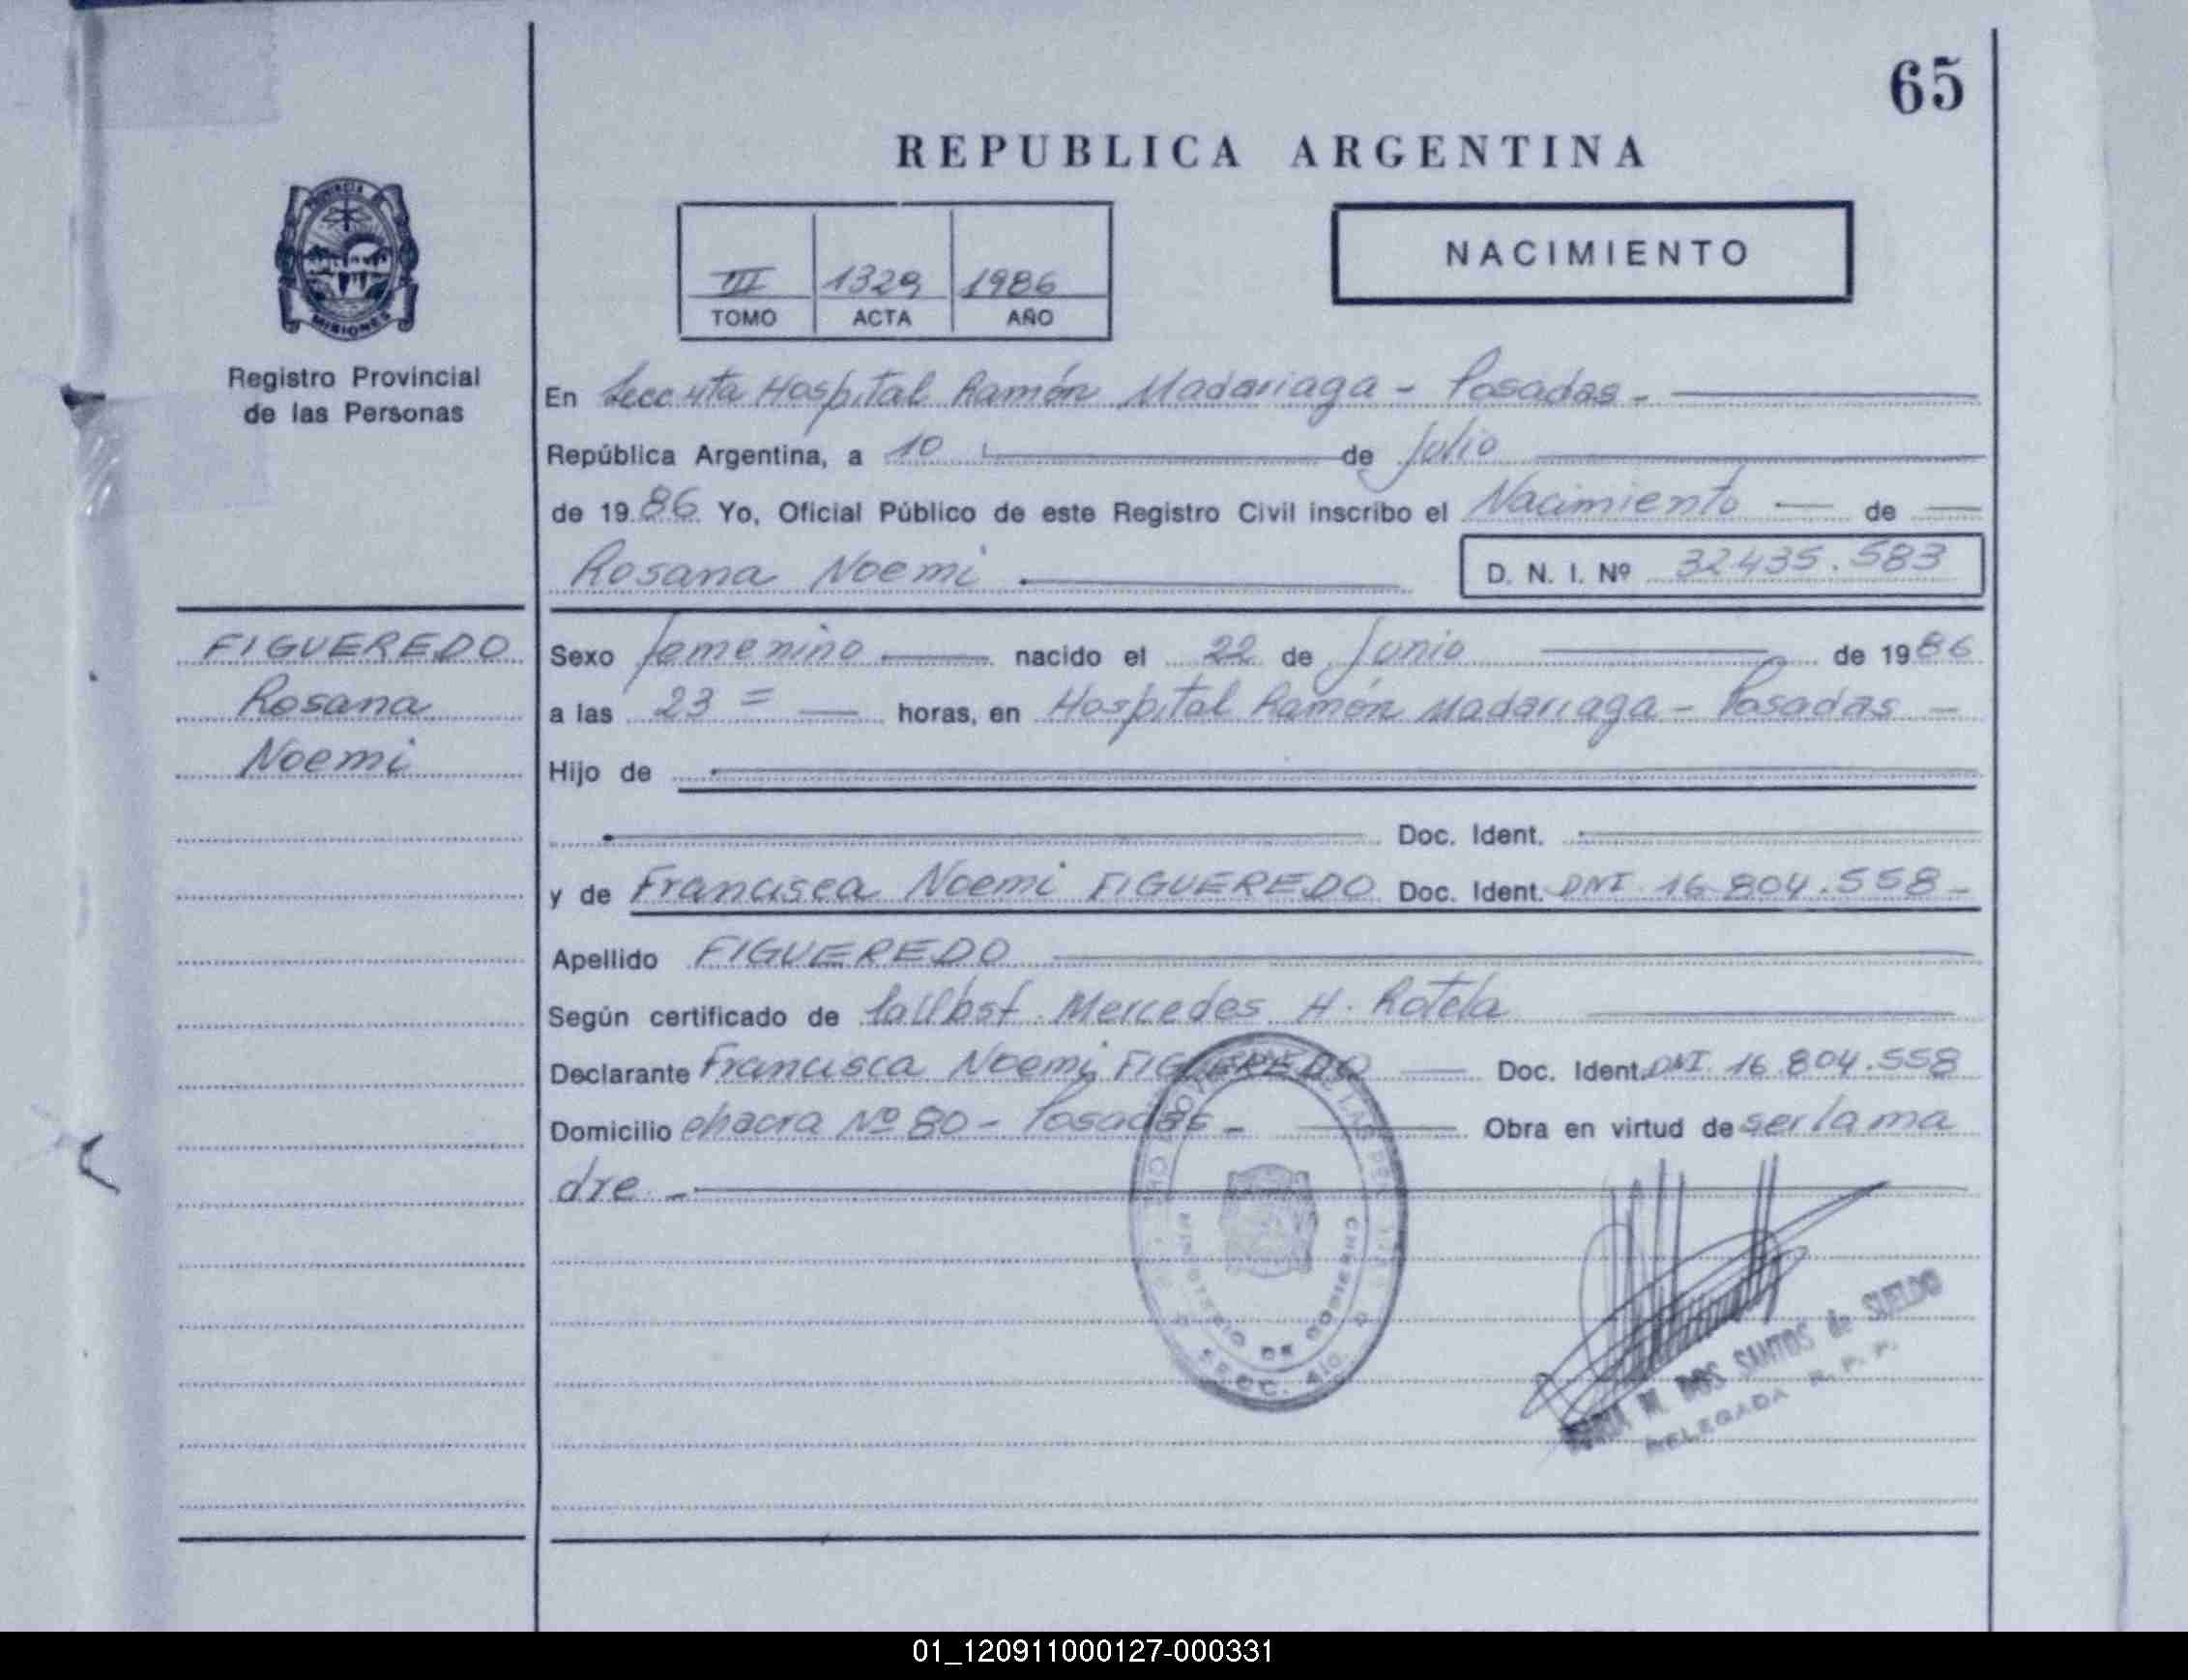 65
REPUBLICA ARGENTINA
NACIMIENTO
III 1329 1986
TOMO ACTA AÑO
MISIONES
Registro Provincial
de las Personas
En Secc 4ta Hospital Ramón Madariaga - Posadas -
República Argentina, a 10 de Julio
de 1986 Yo, Oficial Público de este Registro Civil inscribo el Nacimiento de
Rosana Noemi
D. N. I. Nº 32435.583
FIGUEREDO
Rosana
Noemi
Sexo femenino nacido el 22 de Junio de 1986
a las 23 = horas, en Hospital Ramón Madariaga - Posadas -
Hijo de
Doc. Ident.
y de Francisca Noemi FIGUEREDO Doc. Ident. DNI 16 804.558-
Apellido FIGUEREDO
Según certificado de Mercedes H. Rotela
Declarante Francisca Noemi FIGUEREDO Doc. Ident. DNI 16 804.558
Domicilio chacra Nº 80 - Posadas - Obra en virtud de ser la ma
dre -
MINISTERIO DE GOBIERNO
SECC. 4ta.
M. DOS SANTOS de SUELDO
DELEGADA R. P. P.
01_120911000127-000331